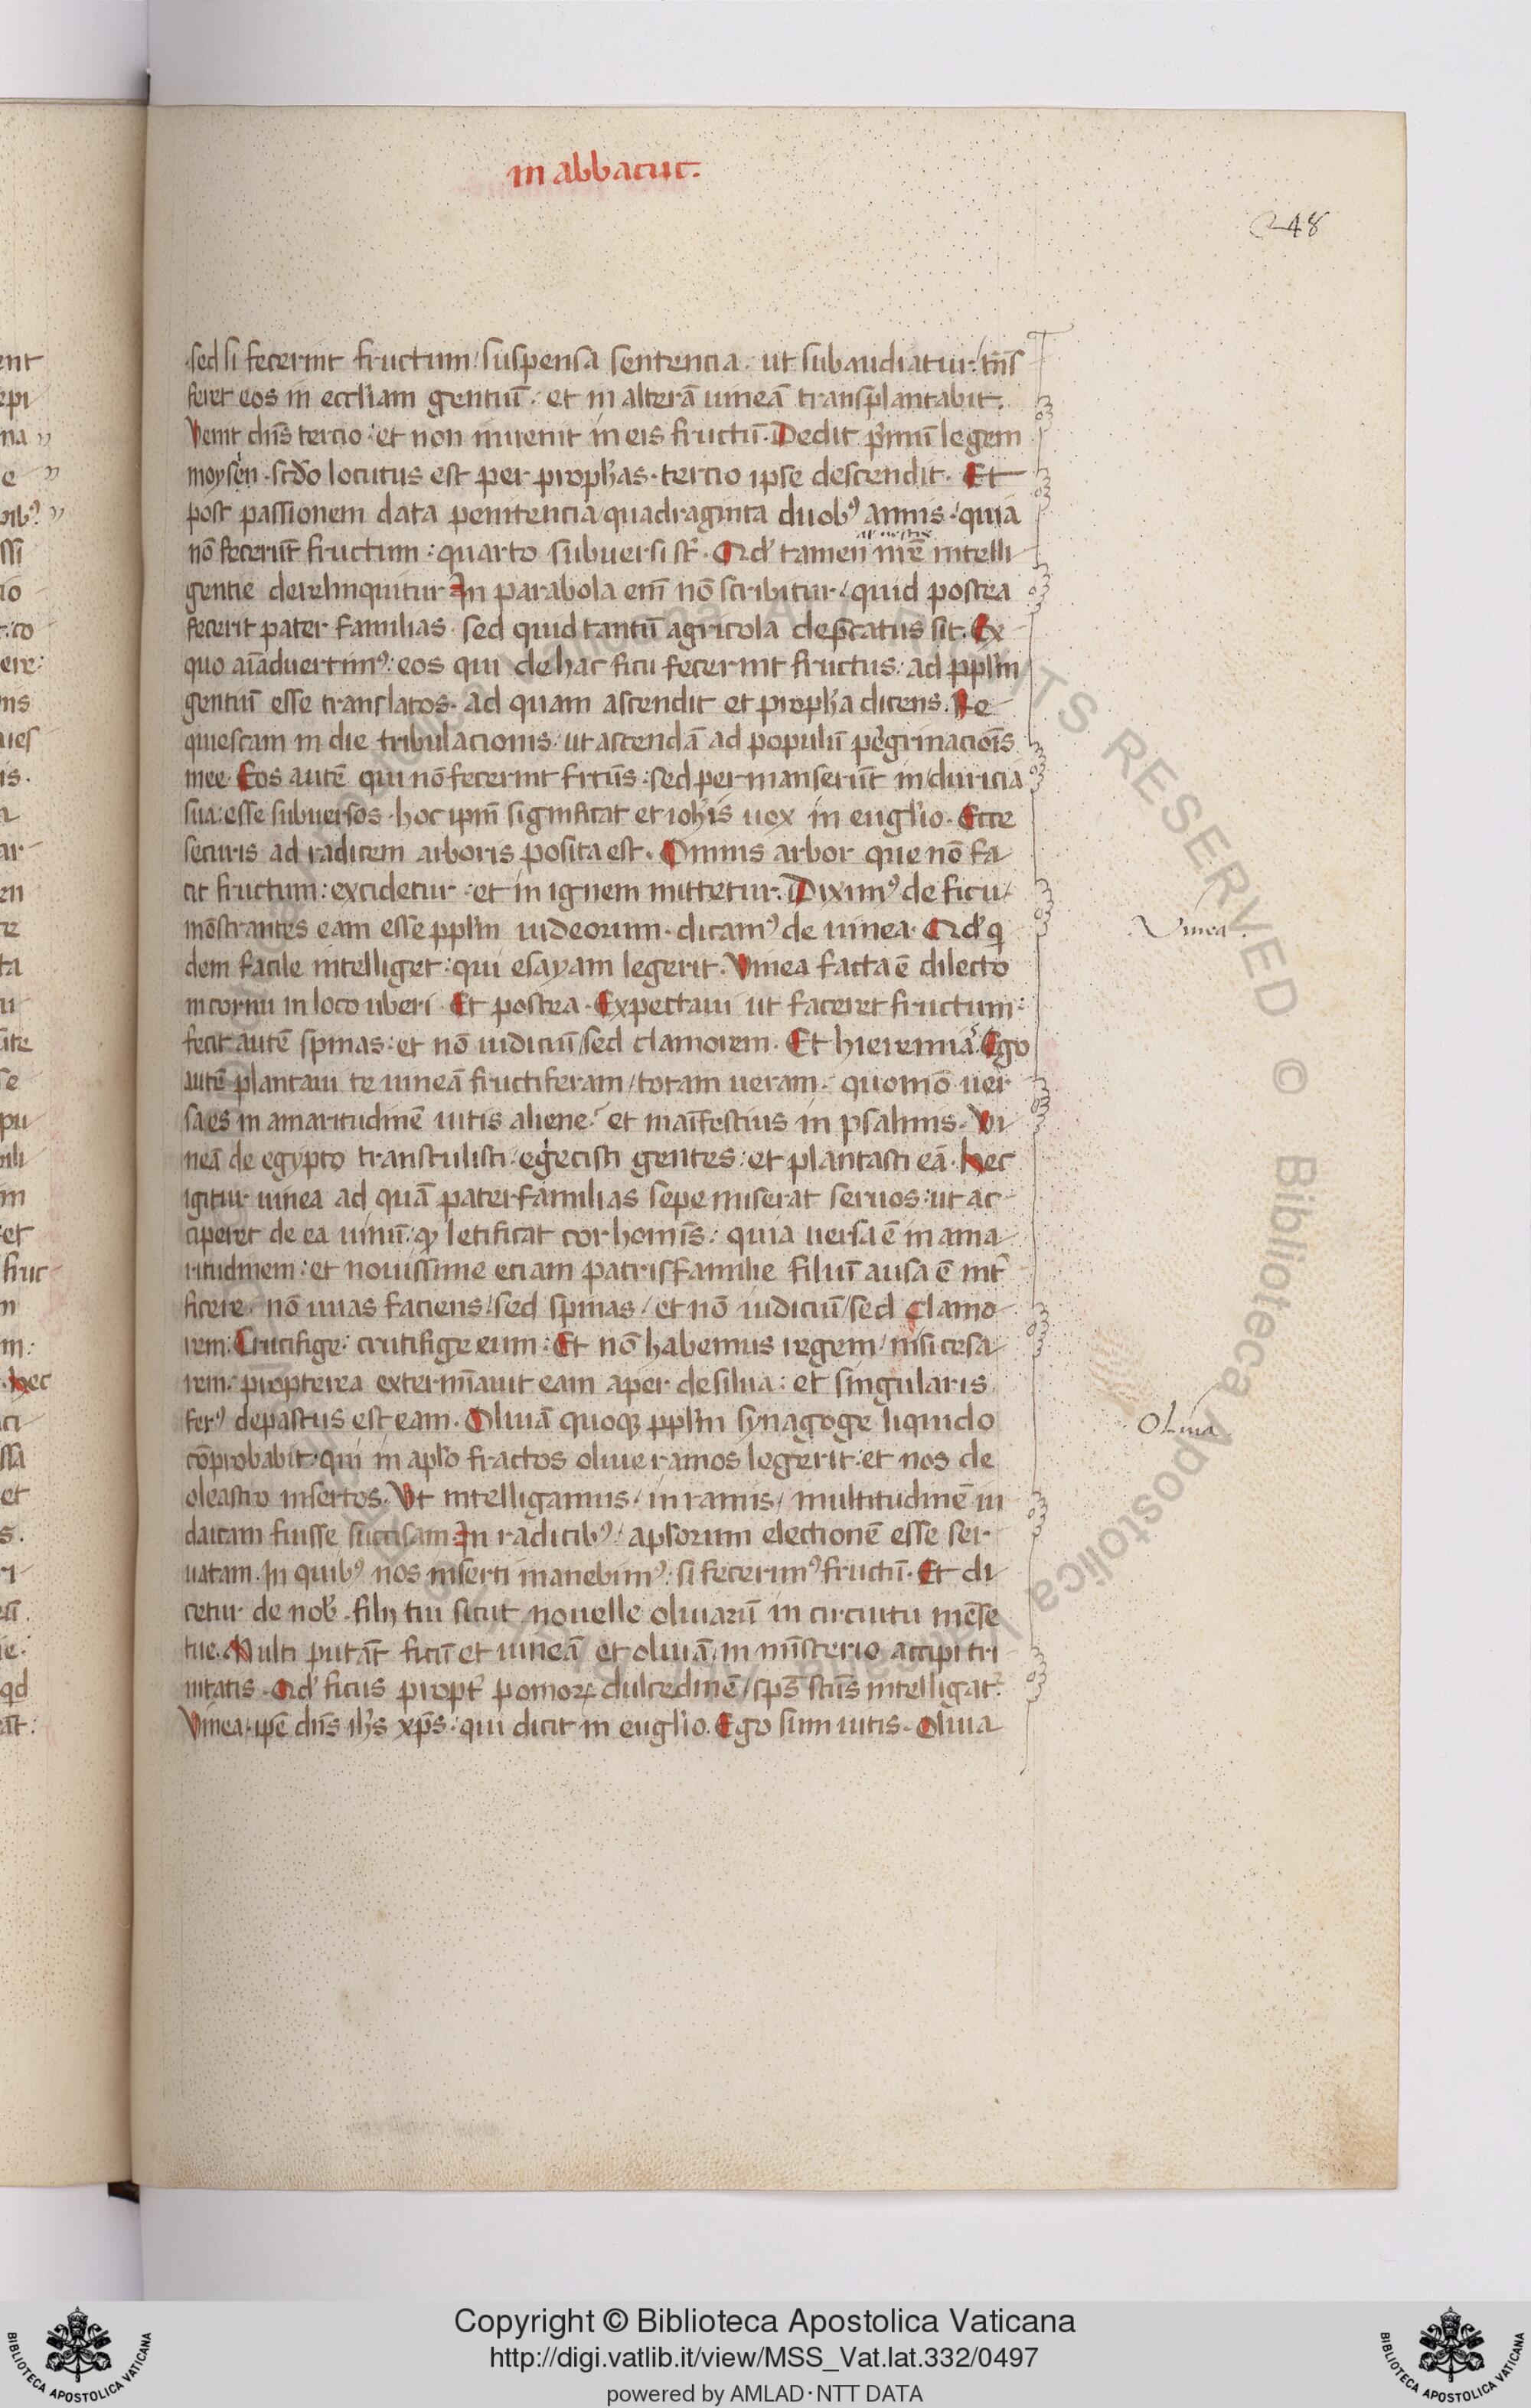 in abbacuc.
248
sed si fecerint fructum / suspensa sentencia. ut subaudiatur / trās
feret eos in eccl'iam gentiū. et in alterā uineā transplantabit.
Venit dn̄s tercio. et non inuenit in eis fructū. Dedit p̄mū legem
moysen. sc̄do locutus est per proph'as. tercio ipse descendit. Et
post passionem data penitencia quadraginta duob9 annis. quia
nō fecerūt fructum: quarto subuersi st̄. Qd' tamen nr̄e intelli
gentie derelinquitur In parabola em̄ nō scribitur / quid postea
fecerit pater familias. sed quid tantū agricola dep̄catus sit. Ex
quo aīaduertim9: eos qui de hac ficu fecerint fructus. ad ppl'm
gentiū esse translatos. ad quam ascendit et proph'a dicens. Re
quiescam in die tribulacionis. ut ascendā ad populū pegrinaciōis
mee. Eos autē qui nō fecerint frc̄us: sed permanserūt in duricia
sua: esse subuersos. hoc ipm̄ significat et ioh'is uox in eugl'io. Ecce
securis ad radicem arboris posita est. Omnis arbor que nō fa
cit fructum: excidetur. et in ignem mittetur. Dixim9 de ficu /
mōstrantes eam esse ppl'm iudeorum. dicam9 de uinea. Qd' q'
dem facile intelliget: qui esayam legerit. Vinea facta ē dilecto
in cornu in loco uberi. Et postea. Expectaui ut faceret fructum:
fecit autē spinas: et nō iudiciū / sed clamorem. Et hieremia. Ego
autē plantaui te uineā fructiferam / totam ueram. quomō uer
sa es in amaritudinē uitis aliene? et maīfestius in psalmis. Vi
neā de egypto transtulisti. egecisti gentes: et plantasti eā. hec
igitur uinea ad quā paterfamilias sepe miserat seruos: ut ac
ciperet de ea uinū. q letificat cor homīs: quia uersa ē in ama
ritudinem: et nouissime etiam patrisfamilie filiū ausa ē int'
ficere. nō uuas faciens / sed spinas / et nō iudiciū / sed clamo
rem: Crucifige: crucifige eum: Et nō habemus regem / nisi cesa
rem: propterea extermīauit eam aper de silua: et singularis
fer9 depastus est eam. Oliuā quoq; ppl'm synagoge liquido
cōprobabit: qui in apl'o fractos oliue ramos legerit. et nos de
oleastro insertos. Vt intelligamus / in ramis / multitudinē iu
daicam fuisse succisam In radicib9 / apl'orum electionē esse ser
uatam. In quib9 nos inserti manebim9: si fecerim9 fructū. Et di
cetur de nob'. filij tui sicut nouelle oliuarū in circuitu mēse
tue. Multi putāt ficū et uineā et oliuā / in mīsterio accipi tri
nitatis. Qd' ficus propt' pomoꝝ dulcedinē / sp̄s sc̄us intelligat'.
Vinea. ip̄e dn̄s ih's xp̄s: qui dicit in eugl'io. Ego sum uitis. Oliua
Vinea.
Oliua
Copyright © Biblioteca Apostolica Vaticana
http://digi.vatlib.it/view/MSS_Vat.lat.332/0497
powered by AMLAD·NTT DATA
BIBLIOTECA APOSTOLICA VATICANA
BIBLIOTECA APOSTOLICA VATICANA